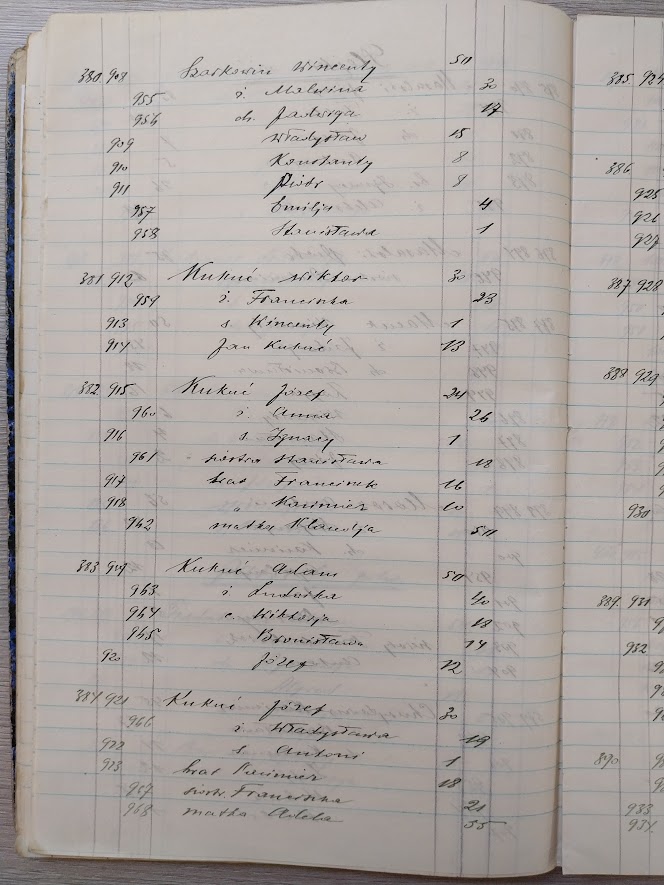 380. 908 Szarkowicz Wincenty 50
955 ż. Malwina 30
956 ch. Jadwiga 17
909 Władysław 15
910 Konstanty 8
911 Piotr 8
957 Emilja 4
958 Stanisława 1
381. 912 Kukuć Wiktor 30
959 ż. Franciszka 23
913 s. Wincenty 1
914 Jan Kukuć 13
382. 915 Kukuć Józef 24
960 ż. Anna 26
916 s. Ignacy 1
961 siostra Stanisława 18
917 brat Franciszek 16
918 „ Kazimierz 10
962 matka Klaudja 50
383 919 Kukuć Adam 50
963 ż. Ludwika 40
964 c. Wiktorja 18
965 Bronisława 14
920 Józef 12
384. 921 Kukuć Józef 30
966 ż. Władysława 19
922 s. Antoni 1
923 brat Kazimierz 18
967 siostr. Franciszka 21
968 matka Adela 55
385. 924
386
925
926
927
387 928
388 929
930
389. 931
932
890
933
934